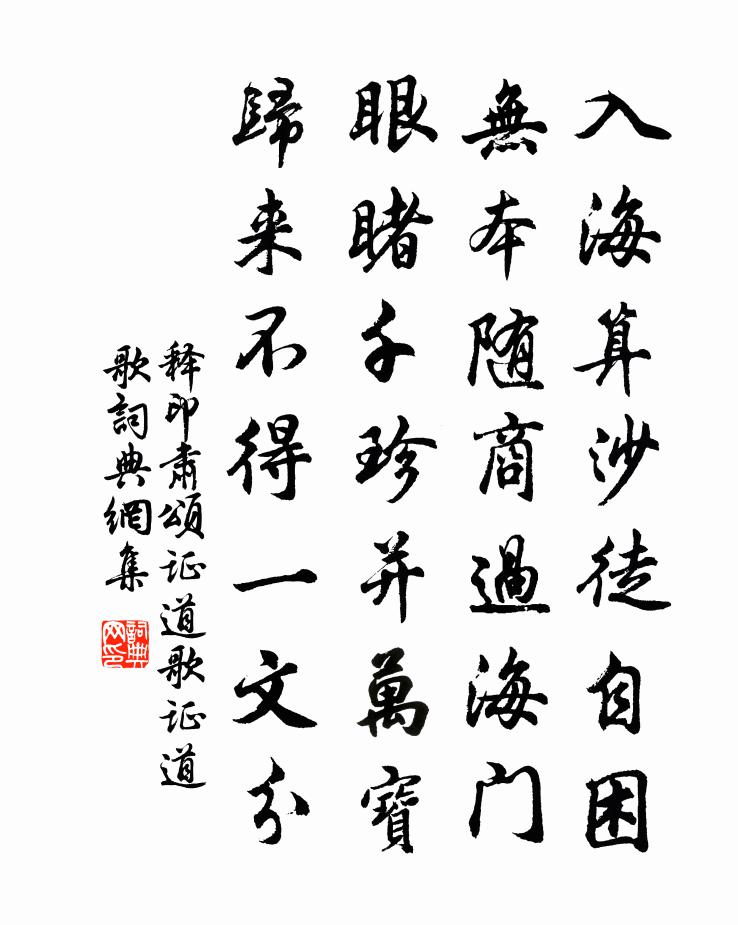 入海算沙徒自困
無本随商過海门
眼睹千珍并萬寶
歸来不得一文分
释印肅頌证道歌证道
歌詞典網集
詞典网印